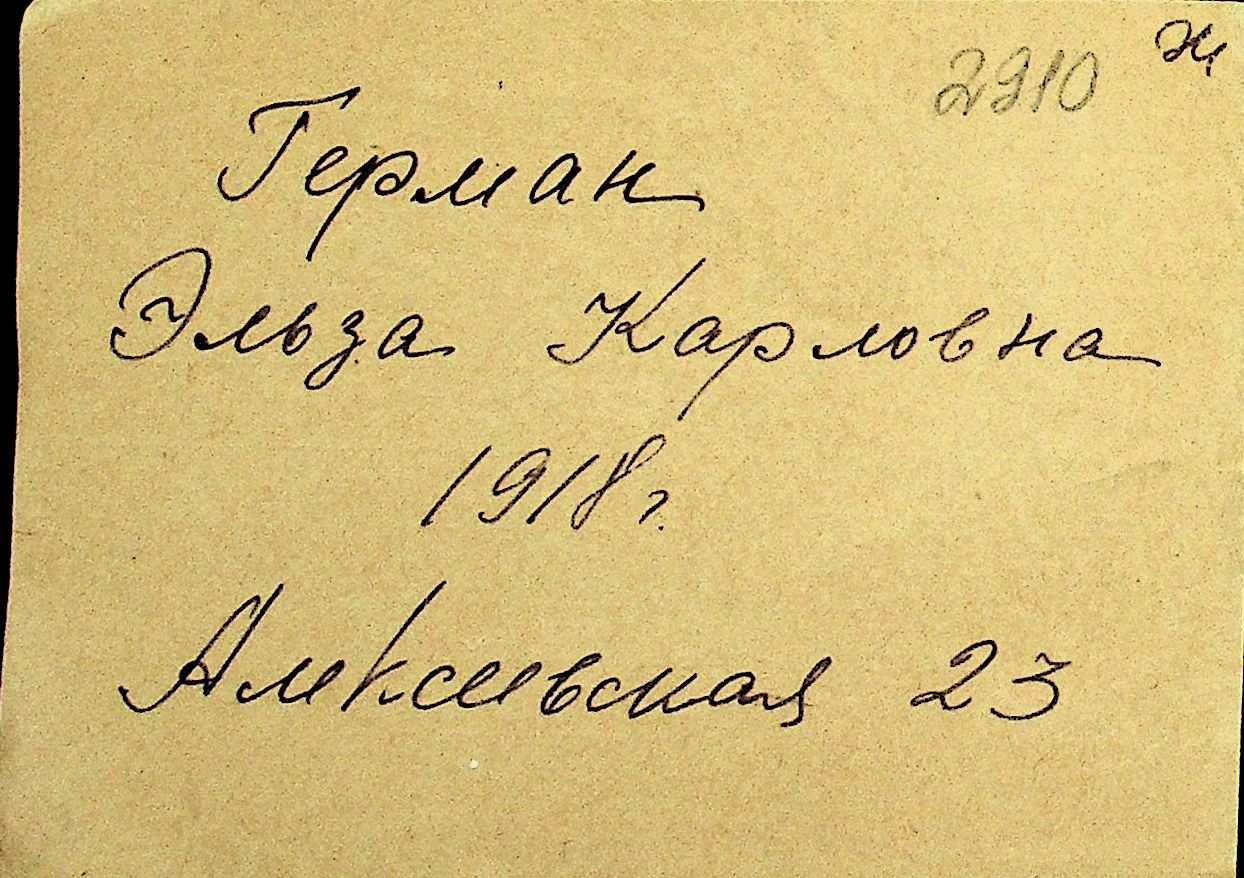 ж
2910
Герман
Эльза Карловна
1918 г.
Алексеевская 23